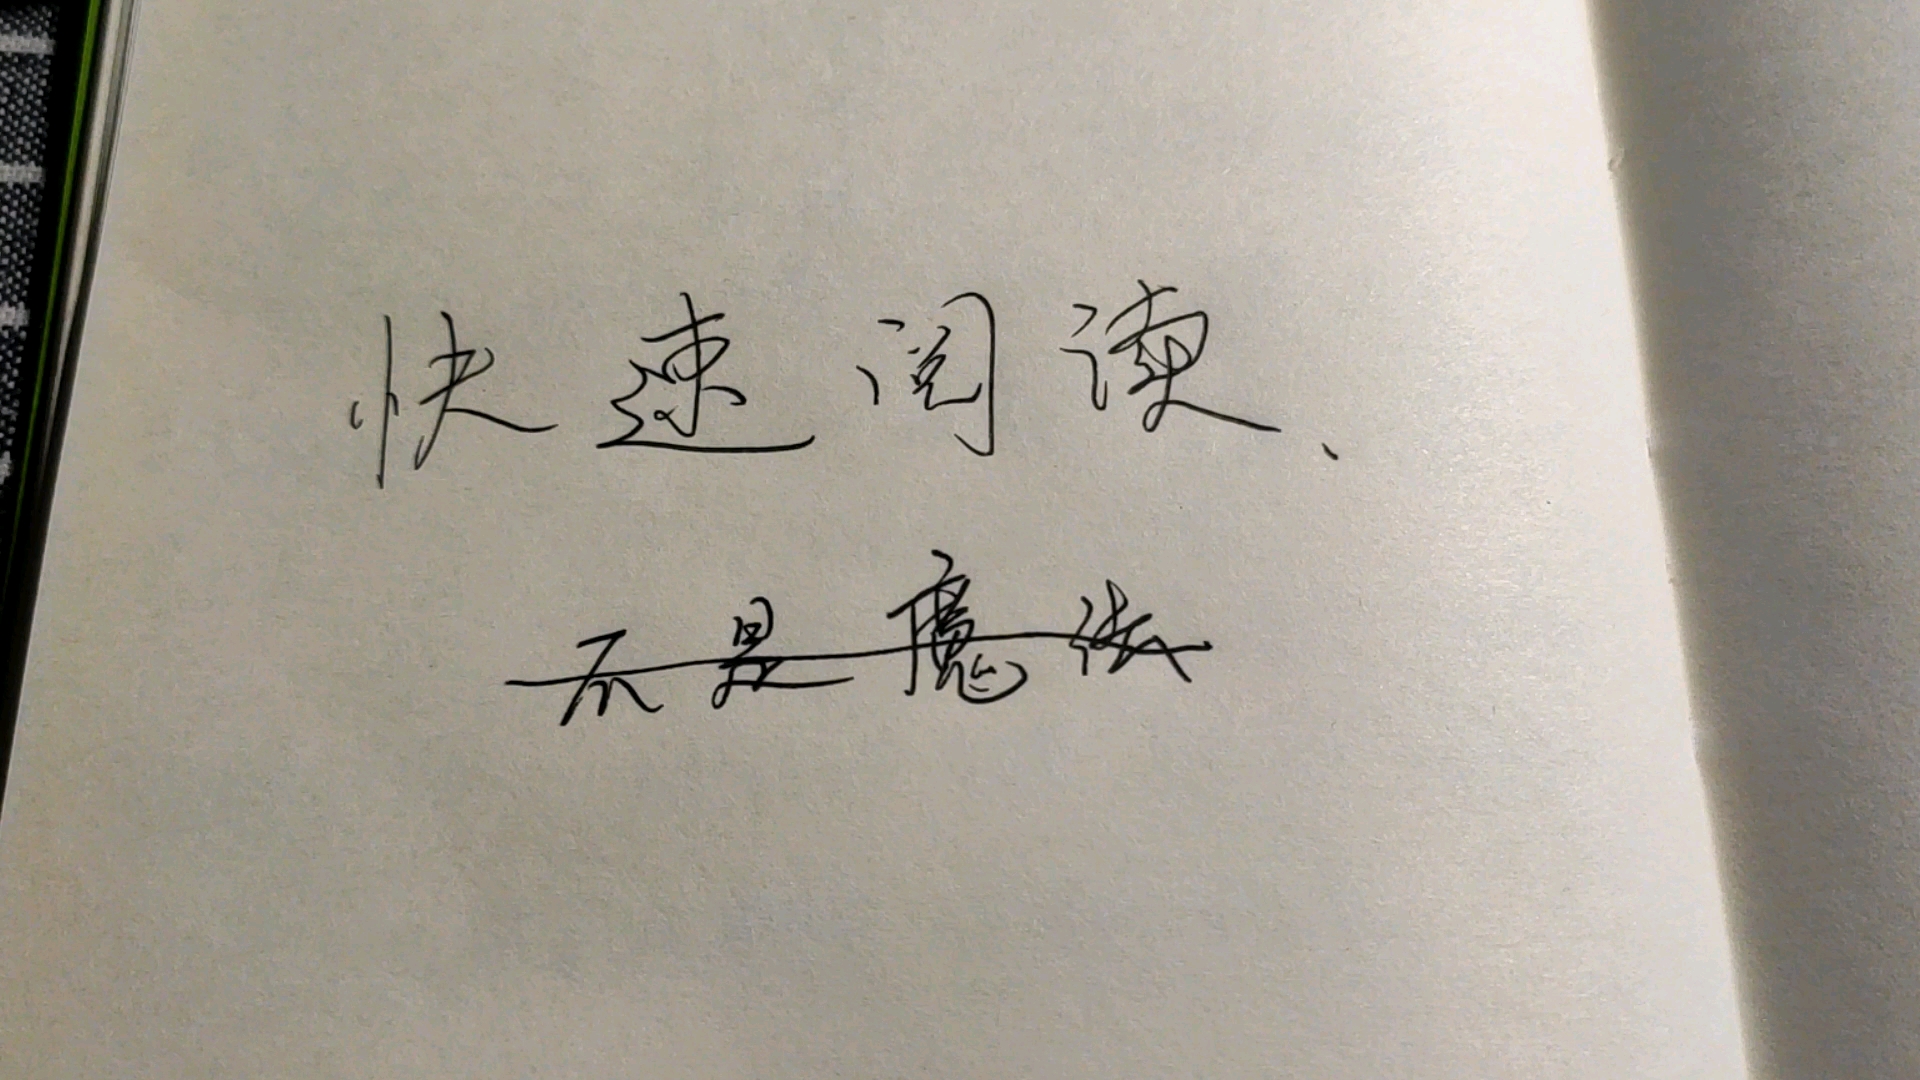 快速阅读、
不是魔法